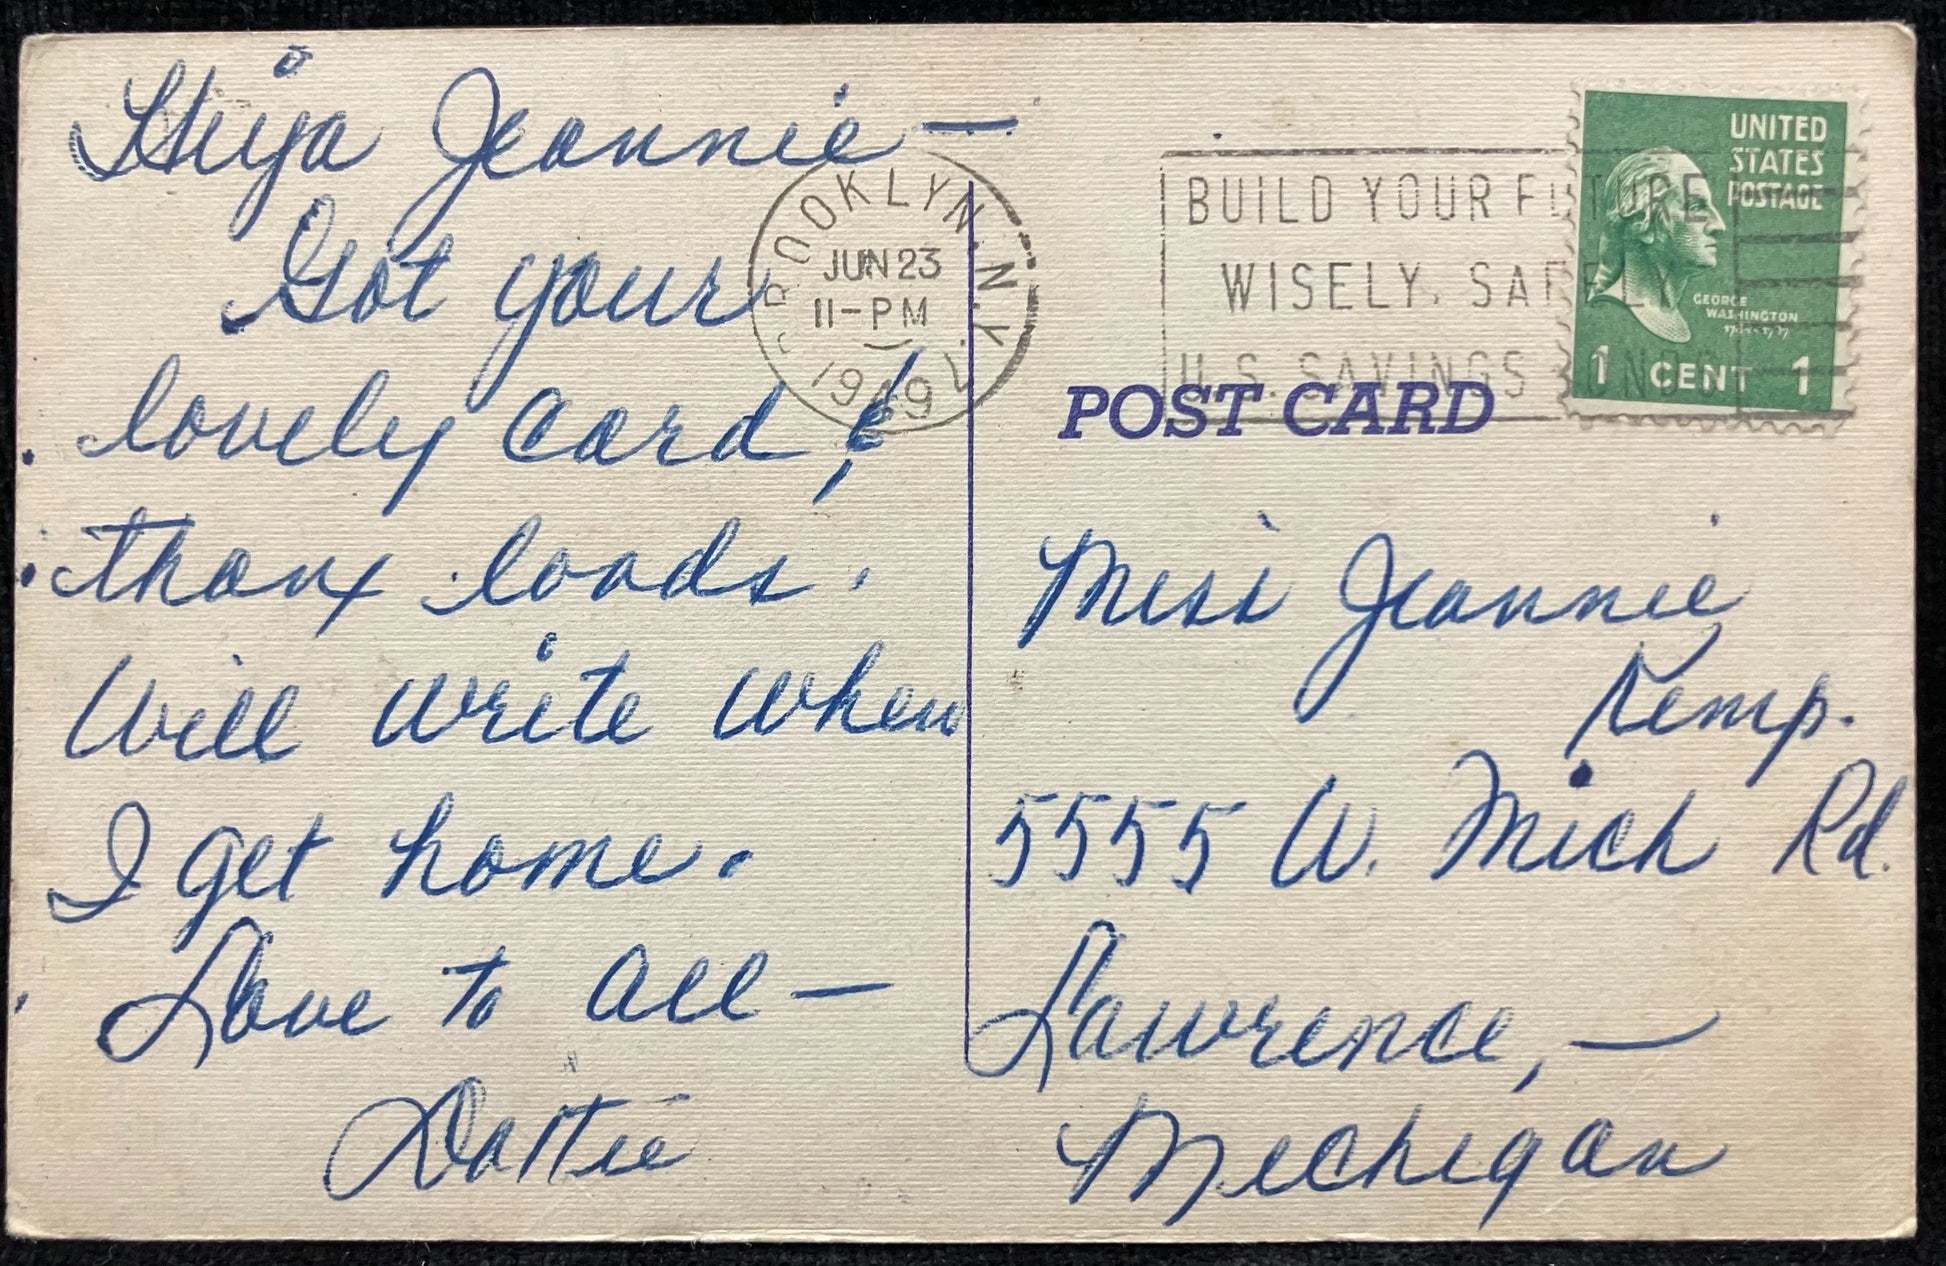 Hiya Jeannie —
Got your
lovely card, &
thanx loads.
Will write when
I get home.
Love to all —
Dottie
BROOKLYN, N.Y.
JUN 23
11-PM
1949
BUILD YOUR FUTURE
WISELY, SAFELY
U.S. SAVINGS BONDS
UNITED
STATES
POSTAGE
GEORGE
WASHINGTON
1 CENT 1
POST CARD
Miss Jeannie
Kemp.
5555 W. Mich Rd.
Lawrence, —
Michigan